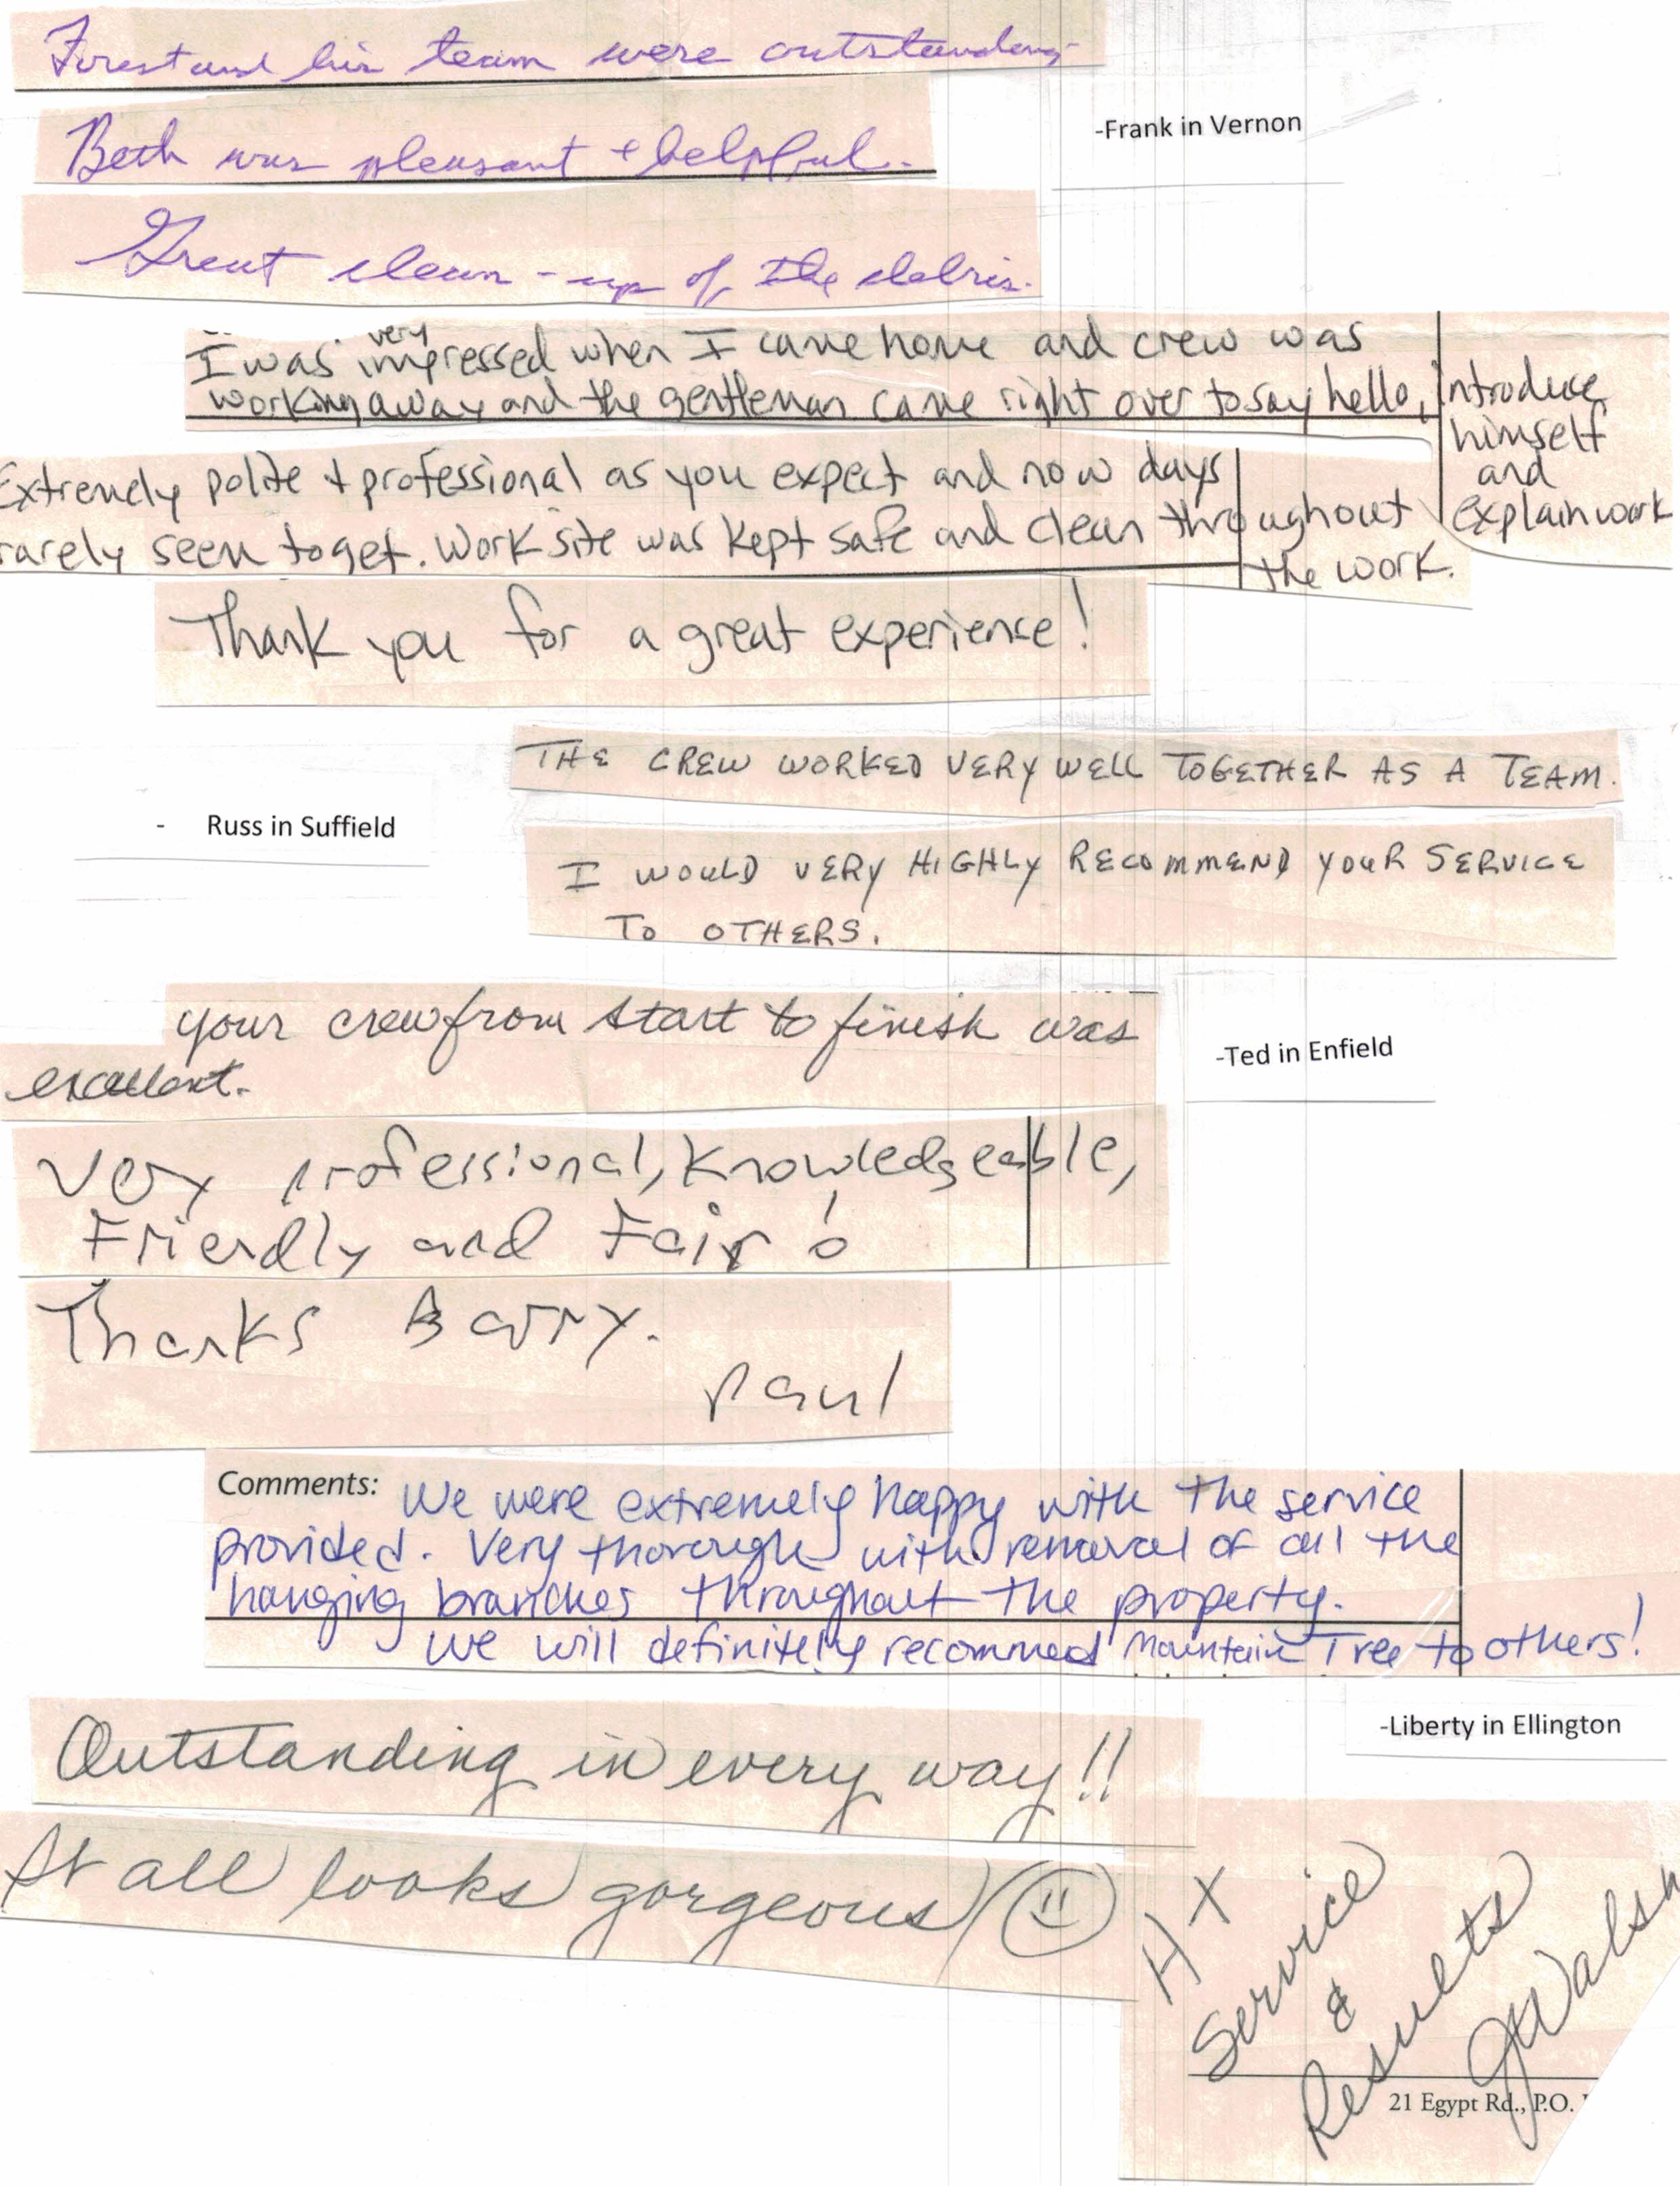 Forest and his team were outstanding
-Frank in Vernon
Beth was pleasant + helpful.
Great clean-up of the debris.
I was very impressed when I came home and crew was
working away and the gentleman came right over to say hello, introduce
himself
and
explain work
Extremely polite + professional as you expect and now days
rarely seen to get. Work site was kept safe and clean throughout
the work.
Thank you for a great experience!
THE CREW WORKED VERY WELL TOGETHER AS A TEAM.
- Russ in Suffield
I WOULD VERY HIGHLY RECOMMEND YOUR SERVICE
TO OTHERS.
your crew from start to finish was
excellent.
-Ted in Enfield
Very professional, Knowledgeable,
Friendly and Fair!
Thanks Barry.
Paul
Comments: We were extremely happy with the service
provided. Very thorough with removal of all the
hanging branches throughout the property.
We will definitely recommed Mountain Tree to others!
-Liberty in Ellington
Outstanding in every way!!
It all looks gorgeous
A+
Service
&
Results
JWalsh
21 Egypt Rd., P.O.